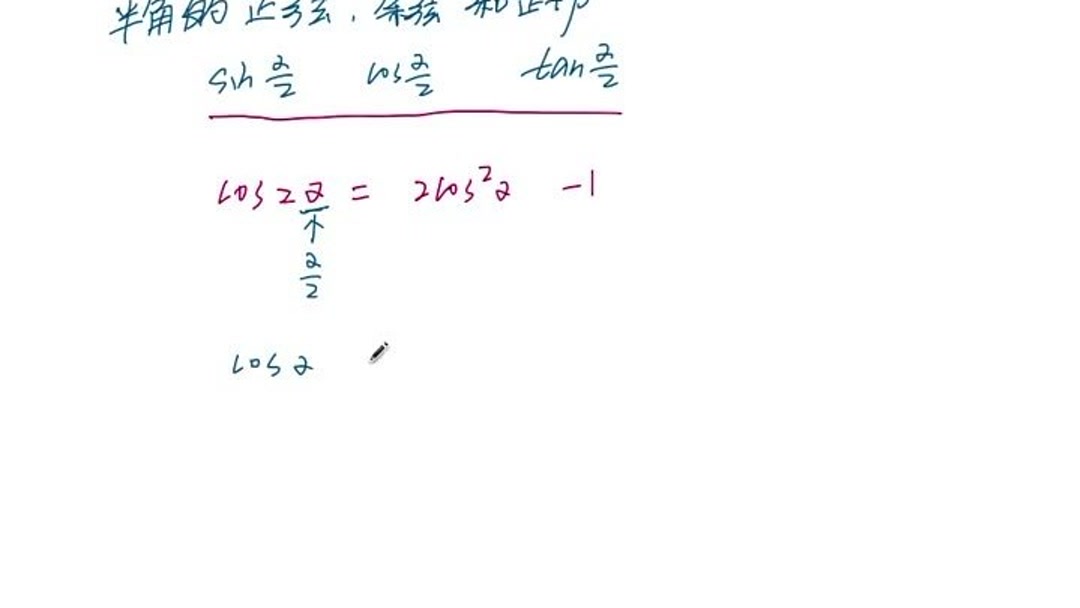 半角的 正弦,余弦 和正切
sin α/2 cos α/2 tan α/2
cos 2α = 2cos²α -1
↑
α/2
cos α